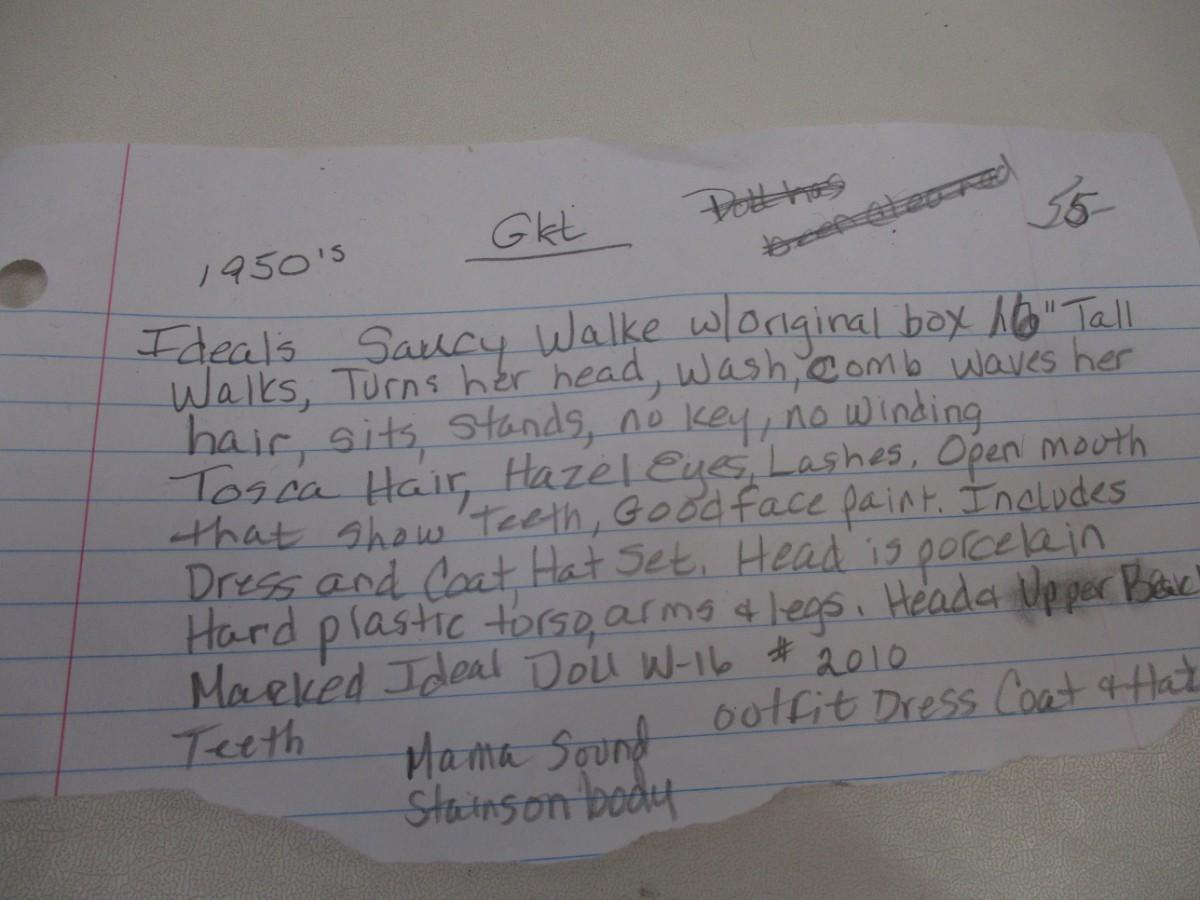 1950's Gkt Doll has 55-
been cleaned
Ideals Saucy Walke w/original box 16" Tall
Walks, Turns her head, wash, comb waves her
hair, sits, stands, no key, no winding
Tosca Hair, Hazel Eyes, Lashes, Open mouth
that show teeth, Good face paint. Includes
Dress and Coat, Hat Set. Head is porcelain
Hard plastic torso, arms & legs. Head & Upper Back
Marked Ideal Doll W-16 # 2010
outfit Dress Coat & Hat
Teeth Mama Sound
Stains on body